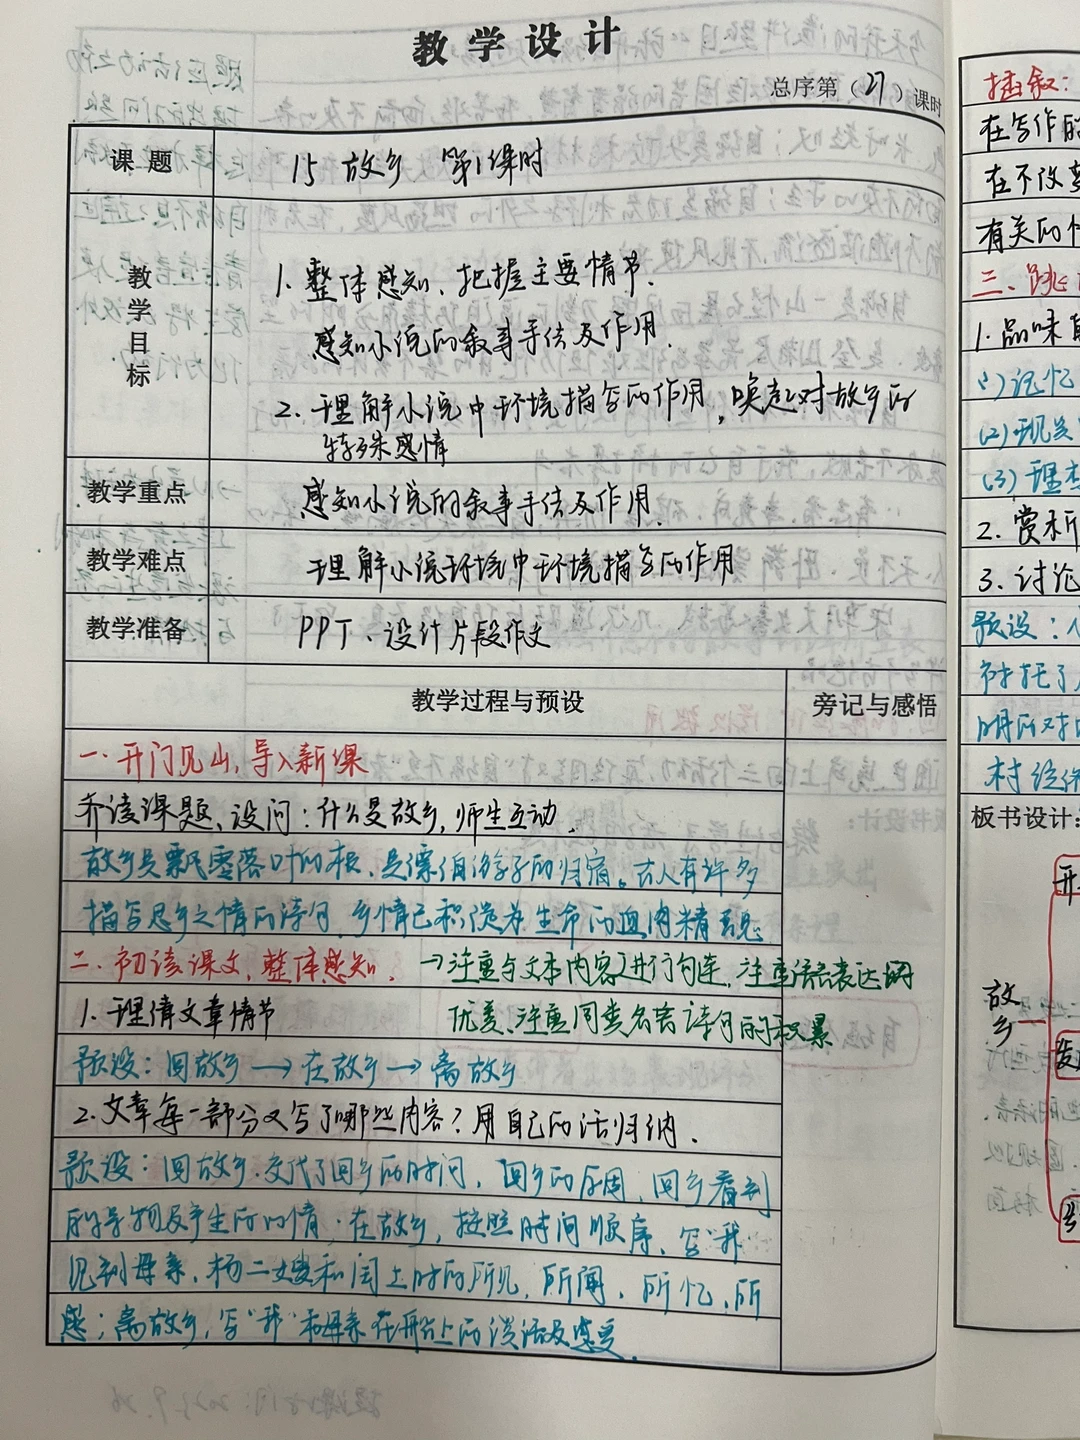 教学设计
总序第（27）课时
课题
15 故乡 第1课时
教学目标
1. 整体感知、把握主要情节.
感知小说的叙事手法及作用.
2. 理解小说中环境描写的作用，唤起对故乡的
特殊感情
教学重点
感知小说的叙事手法及作用.
教学难点
理解小说环境中环境描写的作用
教学准备
PPT、设计片段作文
教学过程与预设
旁记与感悟
一. 开门见山, 导入新课
齐读课题、设问：什么是故乡, 师生互动.
故乡是飘零落叶的根，是漂泊游子的归宿。古人有许多
描写思乡之情的诗句, 乡情已积淀为生命的血肉精魂
二. 初读课文, 整体感知. →注重与文本内容进行勾连, 注重语言表达的
优美、注重同类名言诗句的积累
1. 理清文章情节
预设：回故乡→在故乡→离故乡
2. 文章每一部分又写了哪些内容？用自己的话归纳.
预设：回故乡, 交代了回乡的时间，回乡的原因, 回乡看到
的景物及产生的心情；在故乡, 按照时间顺序、写"我"
见到母亲, 杨二嫂和闰土时的所见, 所闻, 所忆, 所
感；离故乡, 写"我"和母亲在船上的谈话及感受.
插叙：
在写作的
在不改变
有关的情
三. 跳
1. 品味
(1)记忆
(2)现实
(3)理想
2. 赏析
3. 讨论
预设：
衬托了
村
板书设计：
故乡